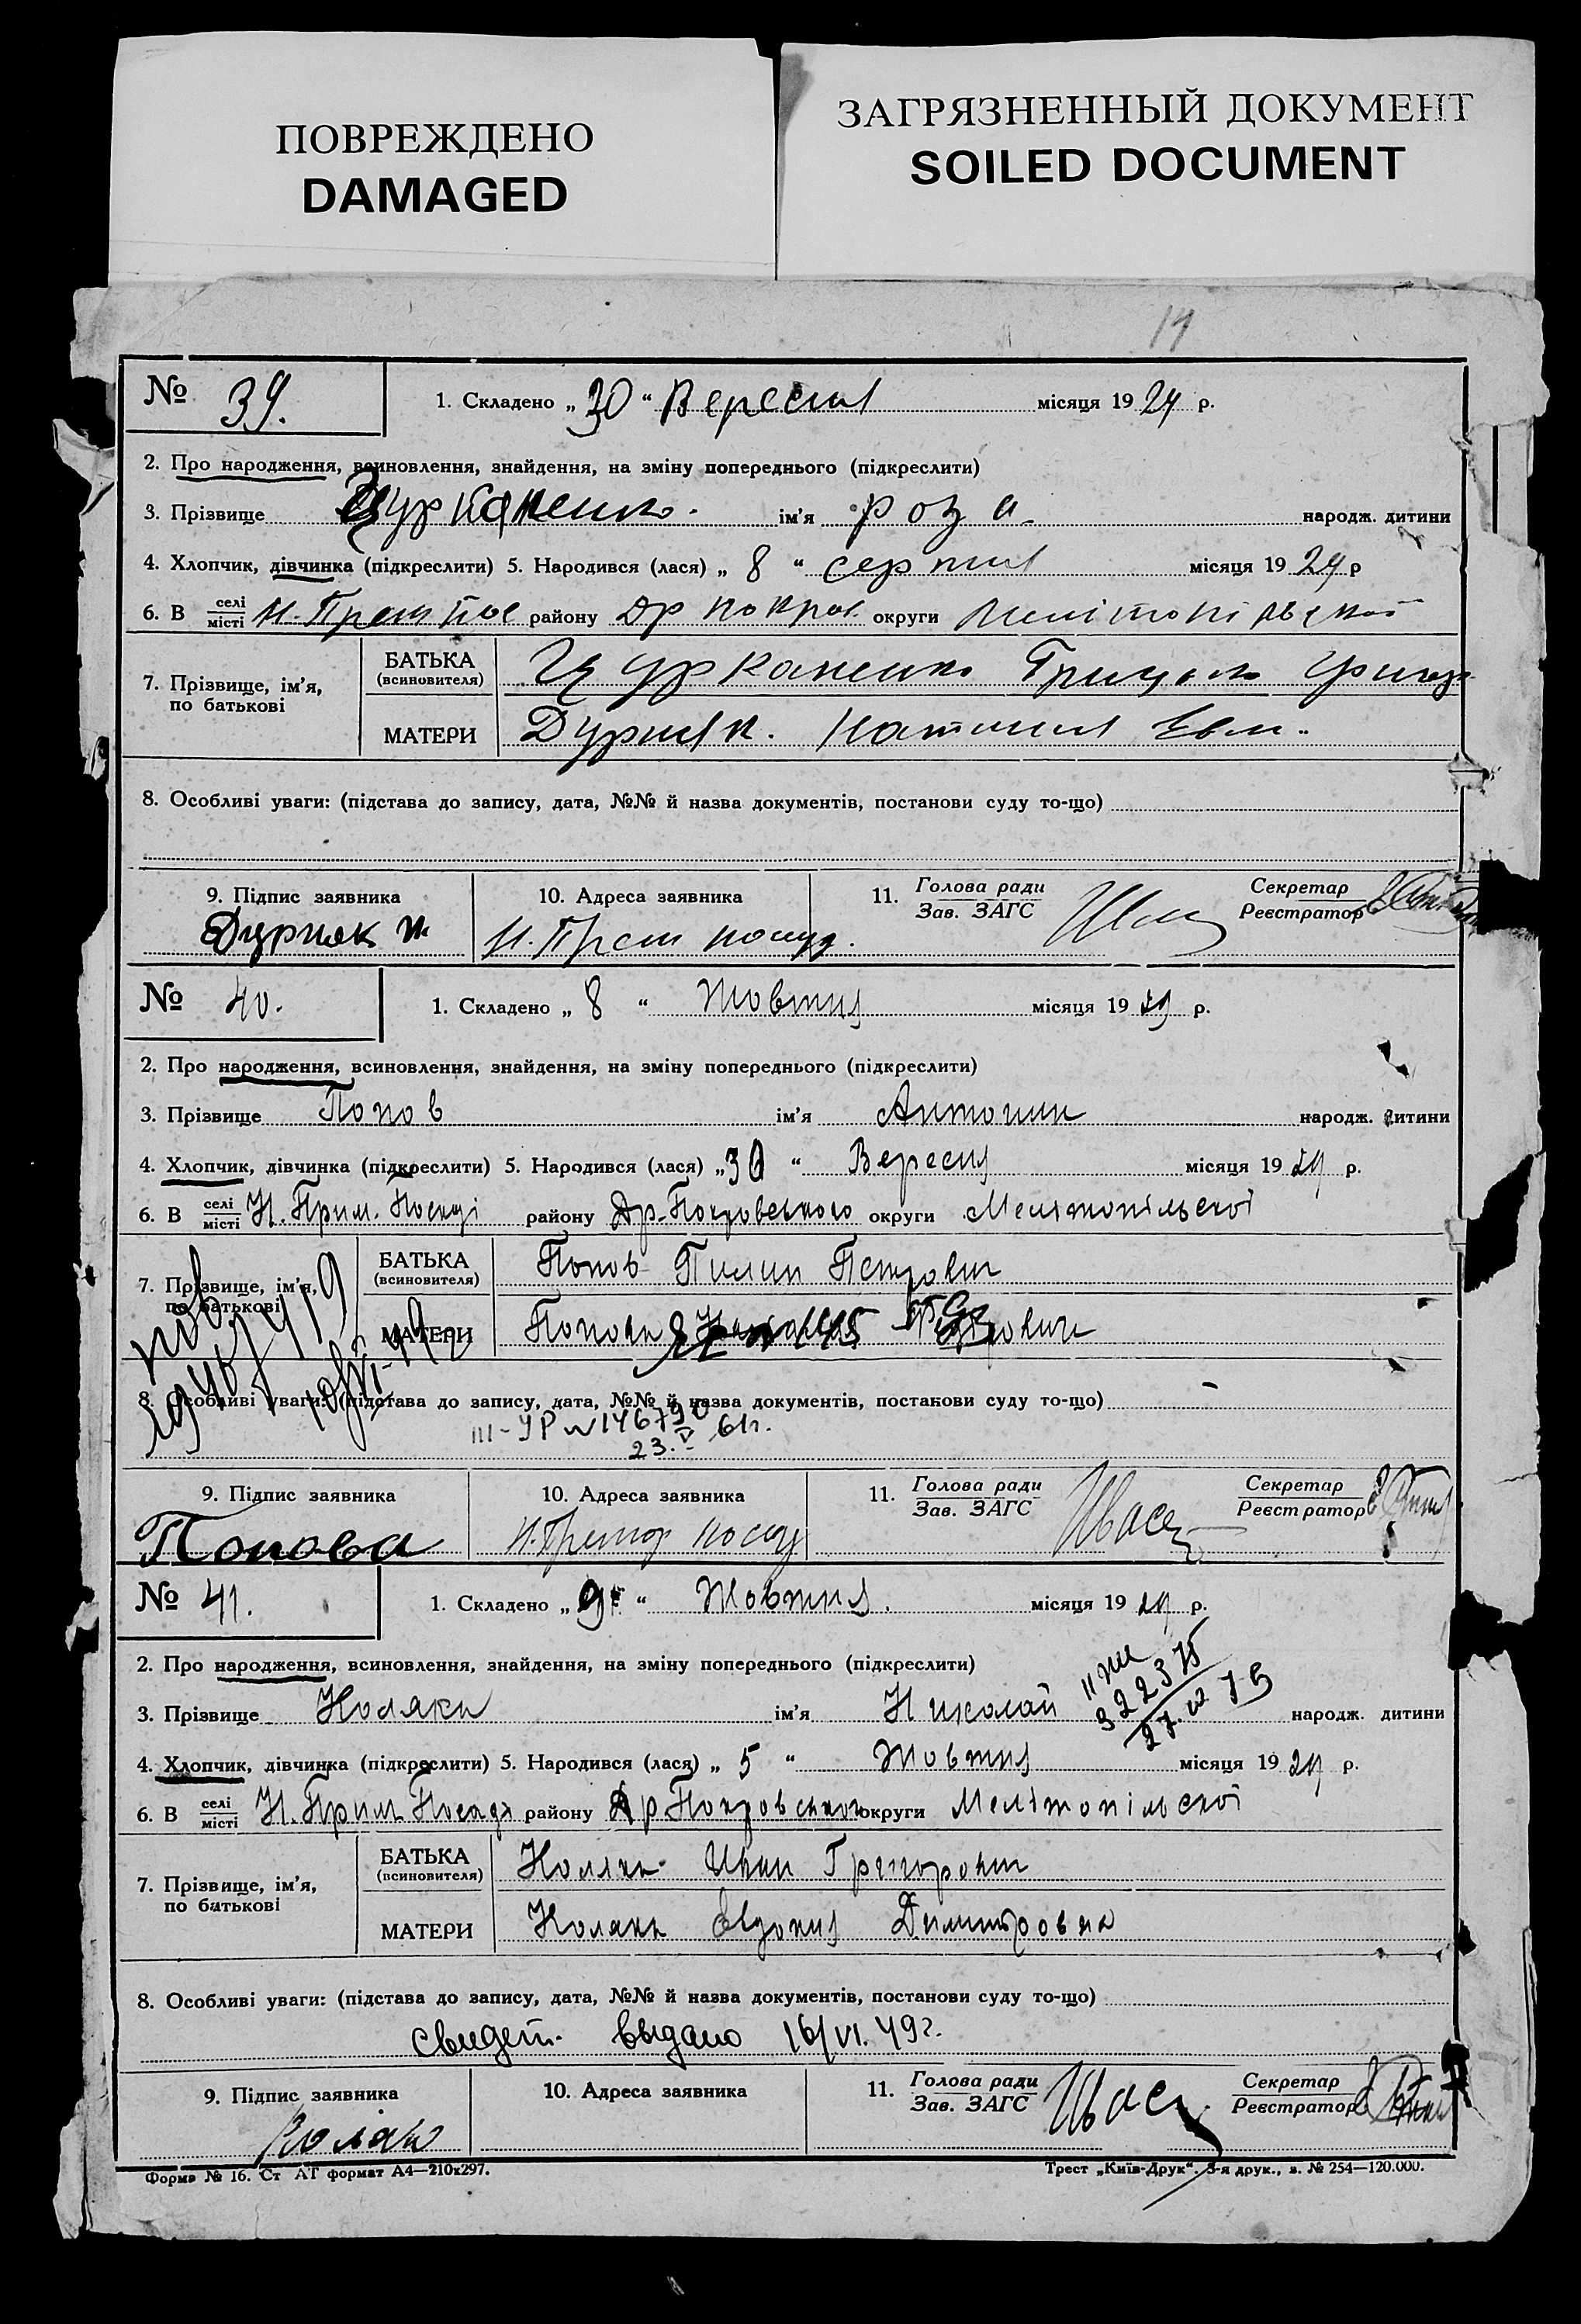 ПОВРЕЖДЕНО
DAMAGED
ЗАГРЯЗНЕННЫЙ ДОКУМЕНТ
SOILED DOCUMENT
№ 39.
1. Складено „ 30 “ Вересня місяця 19 29 р.
2. Про народження, всиновлення, знайдення, на зміну попереднього (підкреслити)
3. Прізвище Цурканенко. ім'я Роза народж. дитини
4. Хлопчик, дівчинка (підкреслити) 5. Народився (лася) „ 8 “ серпня місяця 19 29 р
6. В селі місті району Др Покров. округи Мелітопільської
7. Прізвище, ім'я, по батькові
БАТЬКА (всиновителя) Цурканенко Грицько
МАТЕРИ Дурняк.
8. Особливі уваги: (підстава до запису, дата, №№ й назва документів, постанови суду то-що)
9. Підпис заявника
10. Адреса заявника
11. Голова ради Зав. ЗАГС
Секретар Реєстратор
Дурняк Н. Прем посад.
№ 40.
1. Складено „ 8 “ Жовтня місяця 19 29 р.
2. Про народження, всиновлення, знайдення, на зміну попереднього (підкреслити)
3. Прізвище Попов ім'я Антонин народж. дитини
4. Хлопчик, дівчинка (підкреслити) 5. Народився (лася) „ 30 “ Вересня місяця 19 29 р.
6. В селі місті Н. Прим. Посаді району Др-Покровського округи Мелітопільскої
7. Прізвище, ім'я, по батькові
БАТЬКА (всиновителя) Попов Пилип Петрович
МАТЕРИ Попова
8. Особливі уваги: (підстава до запису, дата, №№ й назва документів, постанови суду то-що)
III-УР № 146790
23.V 61г.
9. Підпис заявника
10. Адреса заявника
11. Голова ради Зав. ЗАГС
Секретар Реєстратор
Попова
№ 41.
1. Складено „ 9 “ Жовтня. місяця 19 29 р.
2. Про народження, всиновлення, знайдення, на зміну попереднього (підкреслити)
322375
3. Прізвище Коляка ім'я Николай народж. дитини
4. Хлопчик, дівчинка (підкреслити) 5. Народився (лася) „ 5 “ Жовтня місяця 19 29 р.
6. В селі місті Н. Прим Посаді району Др. Покровського округи Мелітопільскої
7. Прізвище, ім'я, по батькові
БАТЬКА (всиновителя) Коляка Иван Григорович
МАТЕРИ Коляка Явдокия Димитровна
8. Особливі уваги: (підстава до запису, дата, №№ й назва документів, постанови суду то-що)
свидет. выдано 16/VI.49г.
9. Підпис заявника
10. Адреса заявника
11. Голова ради Зав. ЗАГС
Секретар Реєстратор
Коляка
Форма № 16. Ст АТ формат А4—210х297.
Трест „Київ-Друк“. 3-я друк., з. № 254—120.000.